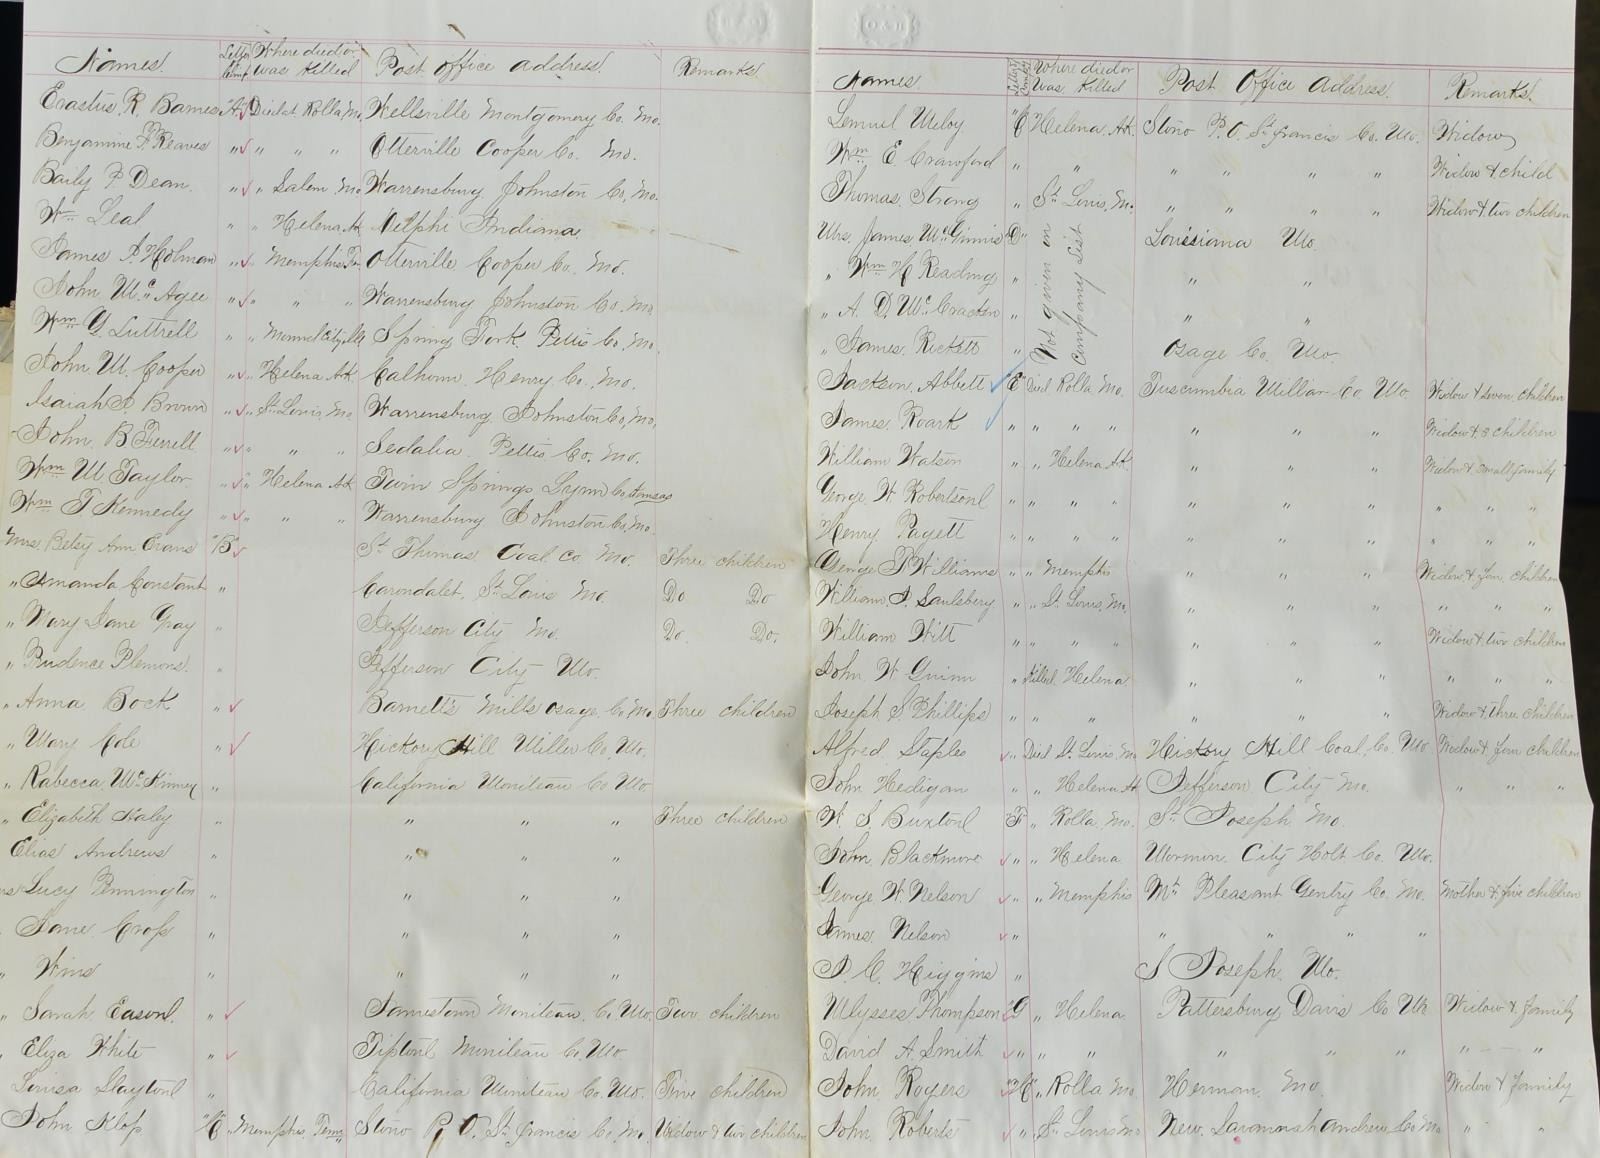 Names. Letter Comp Where died or was Killed Post office address. Remarks
Erastus R. Barnes "A" Died at Rolla, Mo. Wellsville Montgomery Co. Mo.
Benjamine F. Reaves " " " " Otterville Cooper Co. Mo.
Baily P. Dean. " " Salem Mo. Warrensburg Johnston Co, Mo.
Wm Leal " " Helena, Ark Delphi Indiana
James P. Holman " " Memphis, Ten Otterville Cooper Co. Mo.
John Mc Agee " " " " Warrensburg Johnston Co, Mo
Wm G. Luttrell " " Mound City, Ills Spring Fork. Pettis Co, Mo.
John M. Cooper " " Helena Ark Calhoun. Henry Co. Mo.
Isaiah Brown " " St Louis, Mo Warrensburg. Johnston Co, Mo,
John. B Ferrell " " " " Sedalia. Pettis Co. Mo.
Wm M Taylor " " Helena Ark Twin Springs Lynn Co, Kansas
Wm T Kennedy " " " " Warrensburg Johnston Co, Mo.
Mrs. Betsy Ann Evans "B" St Thomas Coal. Co. Mo. Three children
" Amanda Constant " Carondalet. St Louis Mo. Do Do
" Mary Jane Gray " Jefferson City Mo. Do. Do.
" Prudence Plemons " Jefferson City Mo.
" Anna Bock " Barnett's Mills Osage. Co. Mo. Three children
" Mary Cole " Hickory Hill Miller Co, Mo.
" Rabecca McKinney " California Moniteau Co Mo
" Elizabeth Haley " " " " Three children
Elias Andrews " " " "
Lucy Pennington " " " "
" Jane Crop " " " "
" Wins " " " "
" Sarah Eason " Jamestown Moniteau. Co, Mo. Two children
" Eliza White " Tipton Moniteau Co. Mo.
Louisa Slayton " California Moniteau Co. Mo. Five children
John Klop "C" " Memphis Tenn Stono P. O. St francis Co, Mo. Widow & two children
Names. Letter Comp Where died or was Killed Post Office Address. Remarks.
Lemuel Meloy "C" Helena, Ark Stono P. O. St francis Co. Mo. Widow
Wm E Crawford " " " " " " Widow & child
Thomas Strong " St Louis, Mo. " " " " Widow & two children
Mrs. James McGinnis "D" Not given in Company List Louisiana Mo.
" Wm H Reading " " "
" A. D. McCracken " " "
" James Rickett " Osage Co. Mo.
Jackson Abbett "E" Died Rolla Mo. Tuscumbia Millar Co. Mo. Widow & seven children
James Roark " " " " " " " Widow & 8 children
William Watson " " Helena Ark " " " Widow & small family
George W Robertson " " " " " " " " " "
Henry Pagett " " " " " " " " " "
George T Williams " " Memphis " " " Widow & four children
William Saulsbery " " St Louis, Mo. " " " " " "
William Witt " " " " " " " Widow & two children
John W Guinn " Killed Helena " " " " " "
Joseph S. Phillips " " " " " " Widow & three children
Alfred Staples " Died St. Louis, Mo Hickory Hill Coal. Co. Mo Widow & four children
John Hedigan " " Helena Ark Jefferson City Mo. " " "
W. S. Buxton "F" " Rolla, Mo. St Joseph Mo.
John. Blackmore " " Helena Mormon City Holt Co. Mo.
George W. Nelson " " Memphis Mt Pleasant Gentry Co. Mo. Mother & five children
James. Nelson " " " " "
J. C. Higgins " St Joseph. Mo.
Ulysses Thompson "G" " Helena Pattersburg Davis Co Mo Widow & family
David A. Smith " " " " " " " "
John Rogers "H" " Rolla Mo Herman Mo. Widow & family
John. Roberts " " St Louis Mo New. Savannah Andrew Co Mo " "